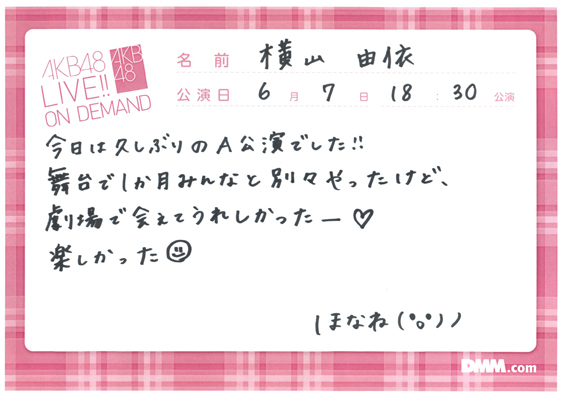 AKB48
LIVE!!
ON DEMAND
AKB
48
名前 横山 由依
公演日 6月 7日 18:30 公演
今日は久しぶりのA公演でした!!
舞台で1か月みんなと別々やったけど、
劇場で会えてうれしかったー♡
楽しかった☺
ほなね(°o°)ノ
DMM.com